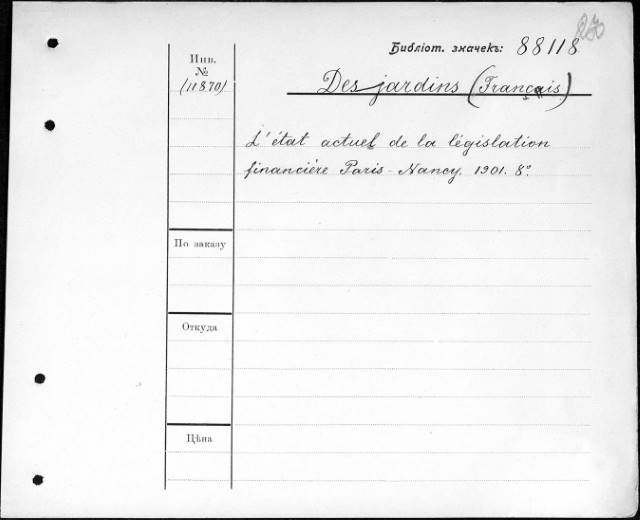 270
Библіот. значекъ: 88118
Инв.
№
(11870)
Desjardins (Français)
L'état actuel de la législation
financière Paris-Nancy. 1901. 8°.
По заказу
Откуда
Цѣна